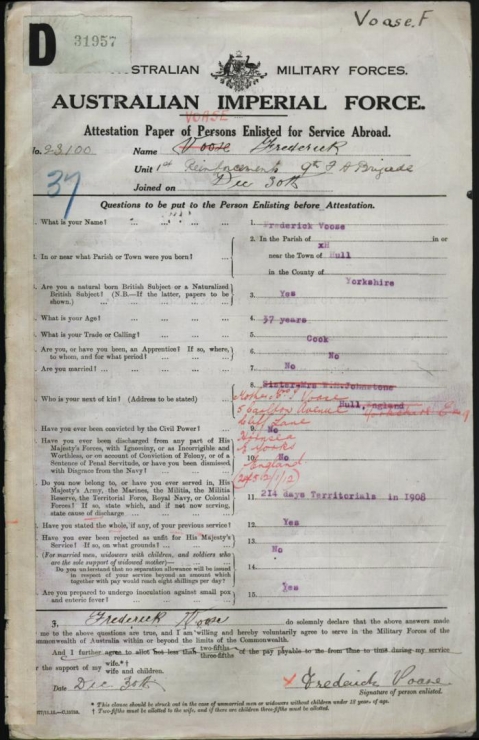 Voase. F
D 31957
AUSTRALIAN MILITARY FORCES.
AUSTRALIAN IMPERIAL FORCE.
VOASE
Attestation Paper of Persons Enlisted for Service Abroad.
No. 23100 Name Voose Frederick
Unit 1st Reinforcements 9th F A Brigade
Joined on Dec 30th
37
Questions to be put to the Person Enlisting before Attestation.
What is your Name? ... 1. Frederick Voose
2. In or near what Parish or Town were you born? 2. In the Parish of xH in or
near the Town of Hull
in the County of Yorkshire
Are you a natural born British Subject or a Naturalized
British Subject? (N.B.—If the latter, papers to be
shown.) 3. Yes
What is your Age? 4. 37 years
What is your Trade or Calling? 5. Cook
Are you, or have you been, an Apprentice? If so, where,
to whom, and for what period? 6. No
Are you married? 7. No
Who is your next of kin? (Address to be stated) 8. Sister Mrs Johnstone
Hull, England
Mother Voase
5 Avenue
Lane
Hornsea
E Yorks
England
Have you ever been convicted by the Civil Power? 9. No
Have you ever been discharged from any part of His
Majesty's Forces, with Ignominy, or as Incorrigible and
Worthless, or on account of Conviction of Felony, or of a
Sentence of Penal Servitude, or have you been dismissed
with Disgrace from the Navy? 10. No
Do you now belong to, or have you ever served in, His
Majesty's Army, the Marines, the Militia, the Militia
Reserve, the Territorial Force, Royal Navy, or Colonial
Forces? If so, state which, and if not now serving,
state cause of discharge 11. 214 days Territorials in 1908
Have you stated the whole, if any, of your previous service? 12. Yes
Have you ever been rejected as unfit for His Majesty's
Service? If so, on what grounds? 13. No
(For married men, widowers with children, and soldiers who
are the sole support of widowed mother)—
Do you understand that no separation allowance will be issued
in respect of your service beyond an amount which
together with pay would reach eight shillings per day? 14.
Are you prepared to undergo inoculation against small pox
and enteric fever? 15. Yes
3. Frederick Voase do solemnly declare that the above answers made
me to the above questions are true, and I am willing and hereby voluntarily agree to serve in the Military Forces of the
Commonwealth of Australia within or beyond the limits of the Commonwealth.
And I further agree to allot not less than two-fifths three-fifths of the pay payable to me from time to time during my service
for the support of my wife.*† wife and children.
Date Dec 30th × Frederick Voase
Signature of person enlisted.
* This clause should be struck out in the case of unmarried men or widowers without children under 18 years of age.
† Two-fifths must be allotted to the wife, and if there are children three-fifths must be allotted.